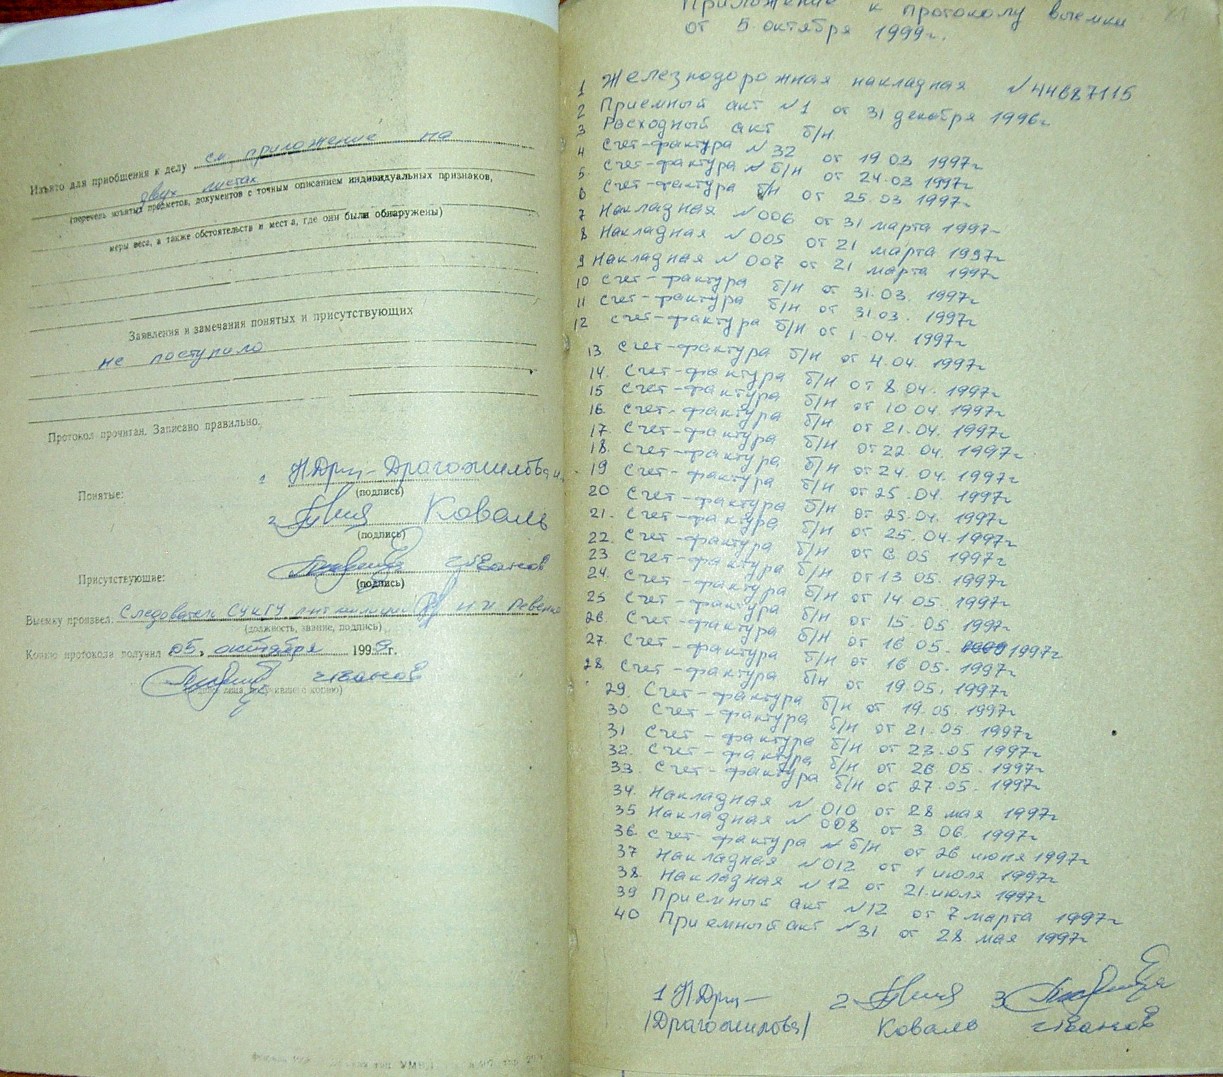 Изъято для приобщения к делу см. приложение на
двух листах
(перечень изъятых предметов, документов с точным описанием индивидуальных признаков,
меры веса, а также обстоятельств и места, где они были обнаружены)
Заявления и замечания понятых и присутствующих
не поступило
Протокол прочитан. Записано правильно.
Понятые: 1 Драгожилова
(подпись)
2 Коваль
(подпись)
Присутствующие:
(подпись)
Выемку произвел: Следователь
(должность, звание, подпись)
Копию протокола получил 05, октября 1999г.
(подпись лица, получившего копию)
21
Приложение к протоколу выемки
от 5 октября 1999г.
1 Железнодорожная накладная №44687115
2 Приемный акт №1 от 31 декабря 1996г
3 Расходный акт б/н
4 Счет-фактура №32 от 19 03 1997г
5 Счет-фактура № б/н от 24.03 1997г
6 Счет-фактура б/н от 25.03 1997г
7 Накладная №006 от 31 марта 1997г
8 Накладная №005 от 21 марта 1997г
9 Накладная №007 от 21 марта 1997г
10 Счет-фактура б/н от 31.03. 1997г
11 Счет-фактура б/н от 31.03. 1997г
12 Счет-фактура б/н от 1.04. 1997г
13. Счет-фактура б/н от 4.04. 1997г
14. Счет-фактура б/н от 8.04. 1997г
15 Счет-фактура б/н от 10.04. 1997г
16. Счет-фактура б/н от 21.04. 1997г
17. Счет-фактура б/н от 22.04. 1997г
18. Счет-фактура б/н от 24.04. 1997г
19 Счет-фактура б/н от 25.04. 1997г
20 Счет-фактура б/н от 25.04. 1997г
21. Счет-фактура б/н от 25.04. 1997г
22. Счет-фактура б/н от 6.05. 1997г
23 Счет-фактура б/н от 13.05. 1997г
24. Счет-фактура б/н от 14.05. 1997г
25 Счет-фактура б/н от 15.05 1997г
26 Счет-фактура б/н от 16.05. 1997г
27. Счет-фактура б/н от 16.05. 1997г
28 Счет-фактура б/н от 19.05. 1997г
29. Счет-фактура б/н от 19.05. 1997г
30 Счет-фактура б/н от 21.05. 1997г
31 Счет-фактура б/н от 23.05 1997г
32. Счет-фактура б/н от 26.05. 1997г
33. Счет-фактура б/н от 27.05. 1997г
34. Накладная №010 от 28 мая 1997г
35 Накладная №008 от 3.06. 1997г
36. Счет-фактура № б/н от 26 июня 1997г
37 Накладная №012 от 1 июля 1997г
38. Накладная №12 от 21.июля 1997г
39 Приемный акт №12 от 7 марта 1997г
40 Приемный акт №31 от 28 мая 1997г
1 2 3
/Драгожилова/ Коваль